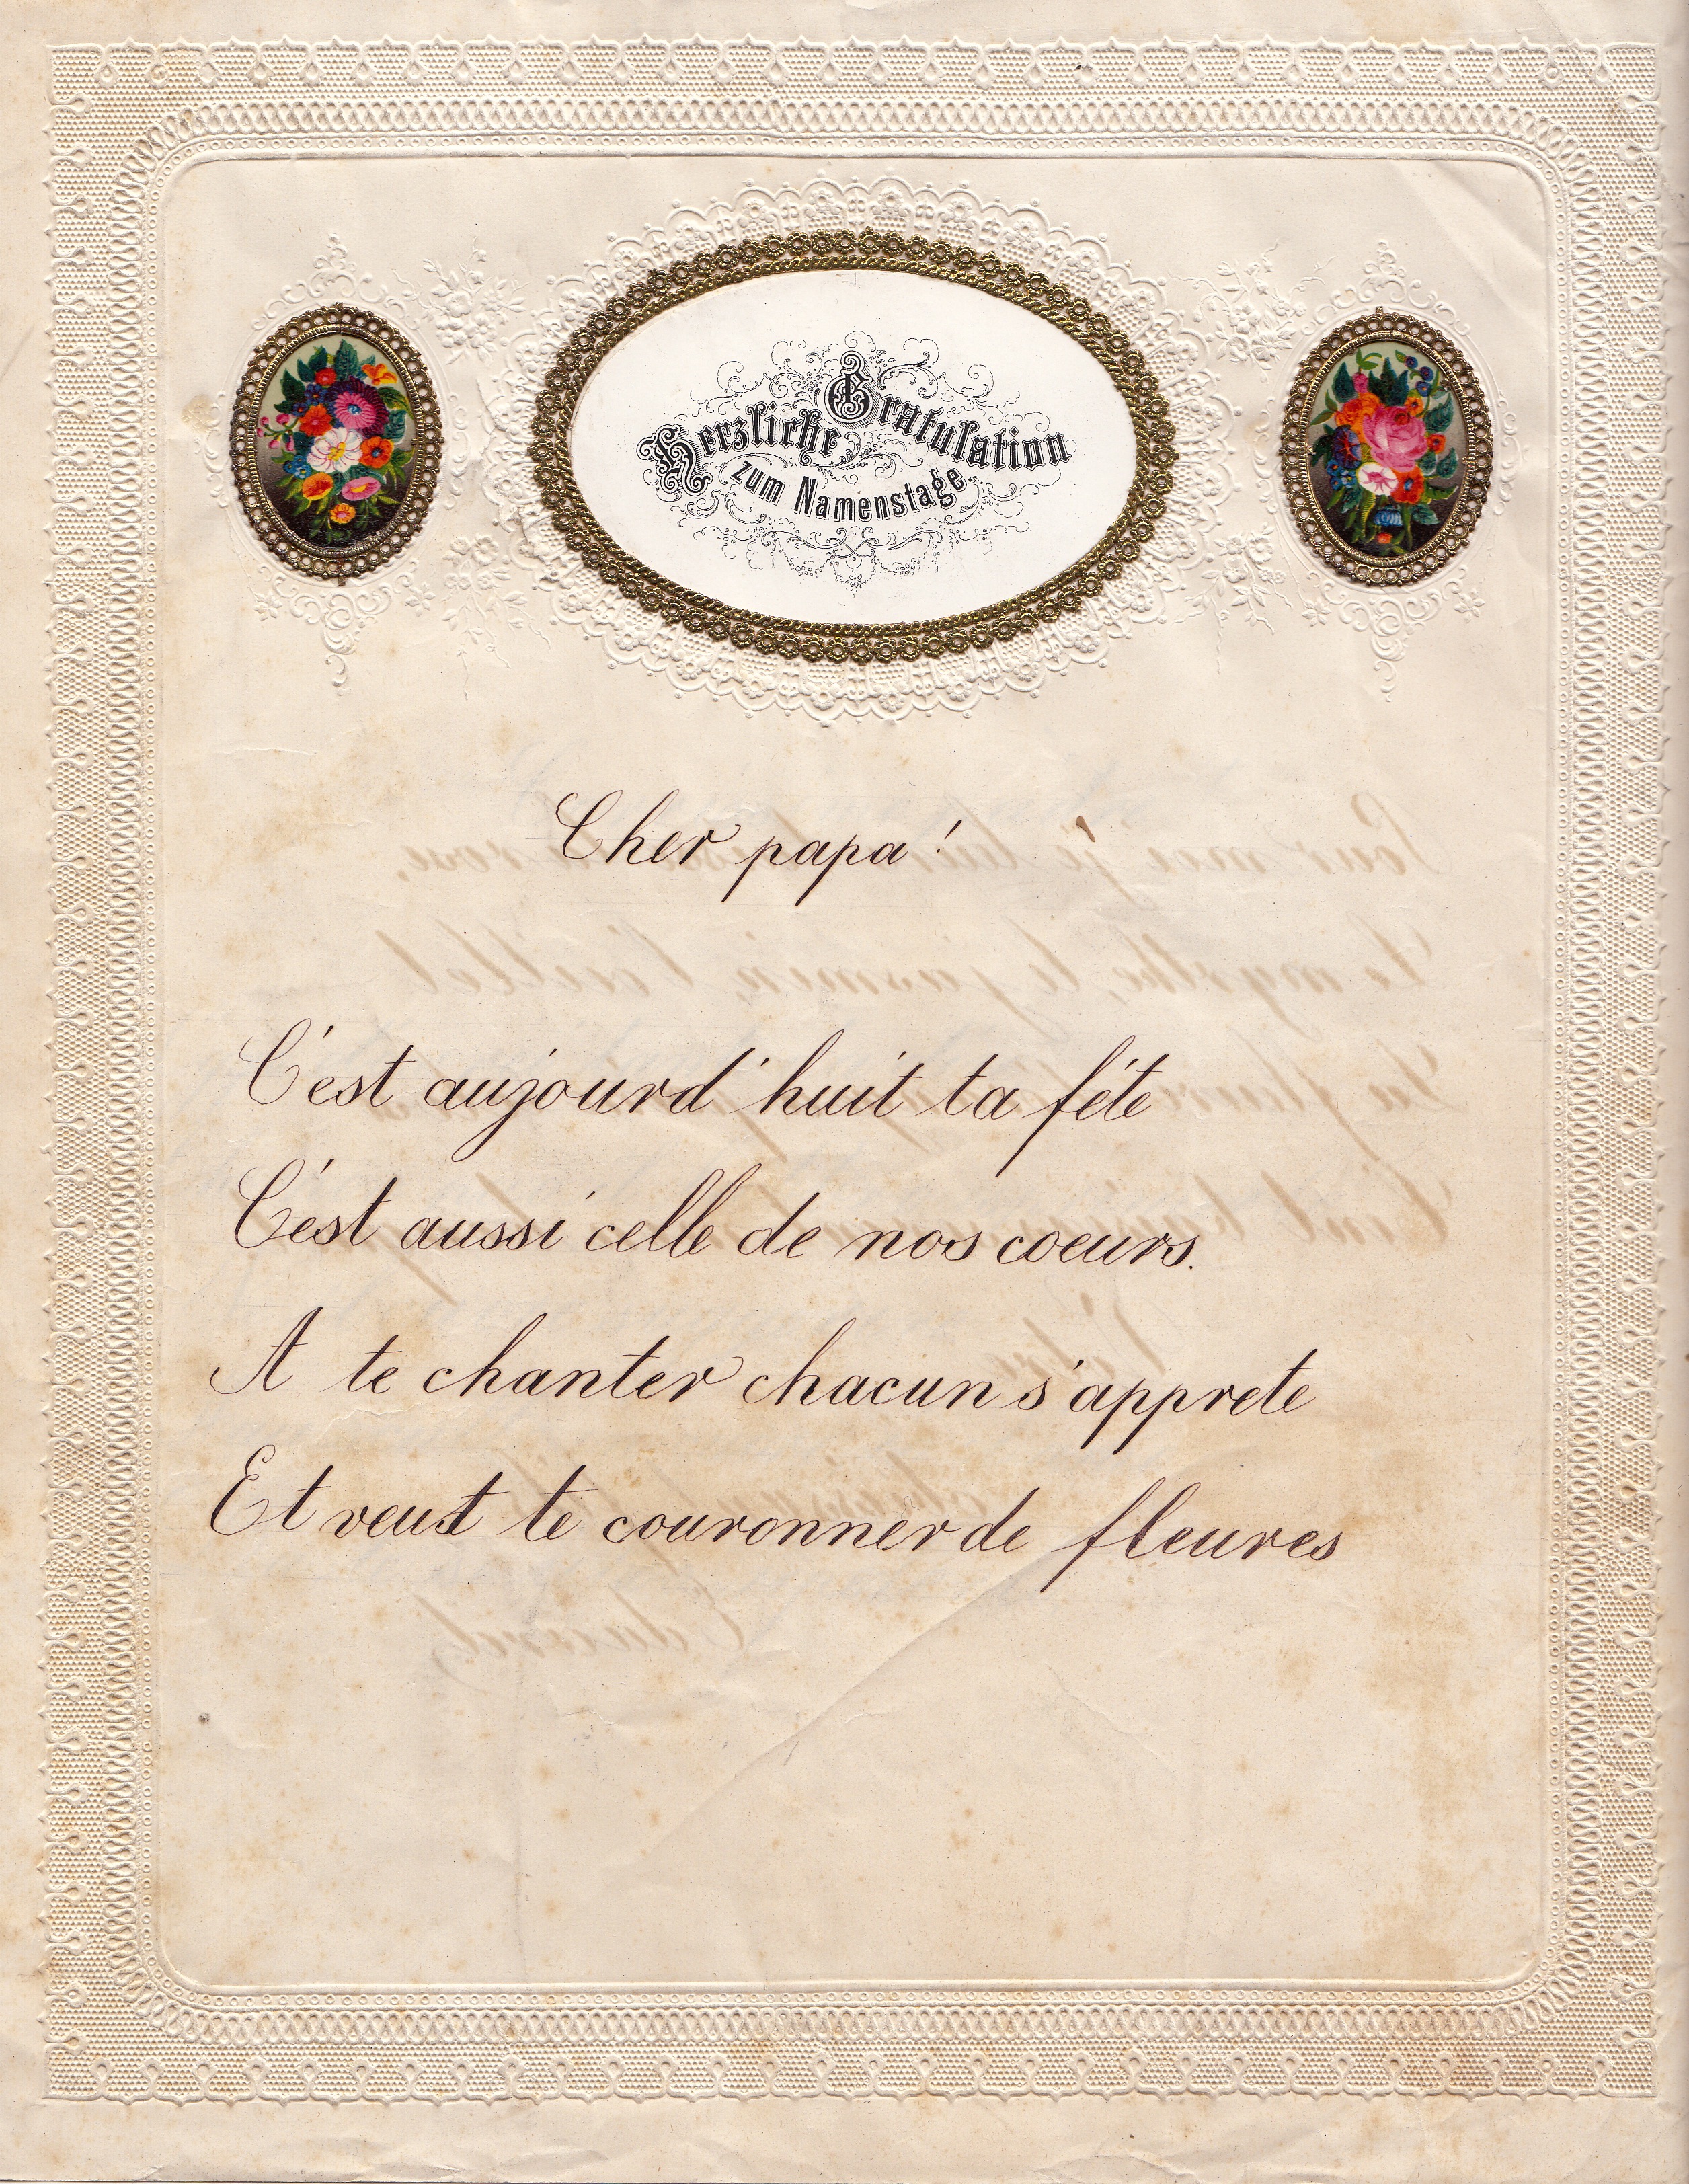 Herzliche Gratulation
zum Namenstage.
Cher papa!
C'est aujourd'huit ta féte
C'est aussi celle de nos coeurs.
A te chanter chacun s'apprete
Et veut te couronner de fleures